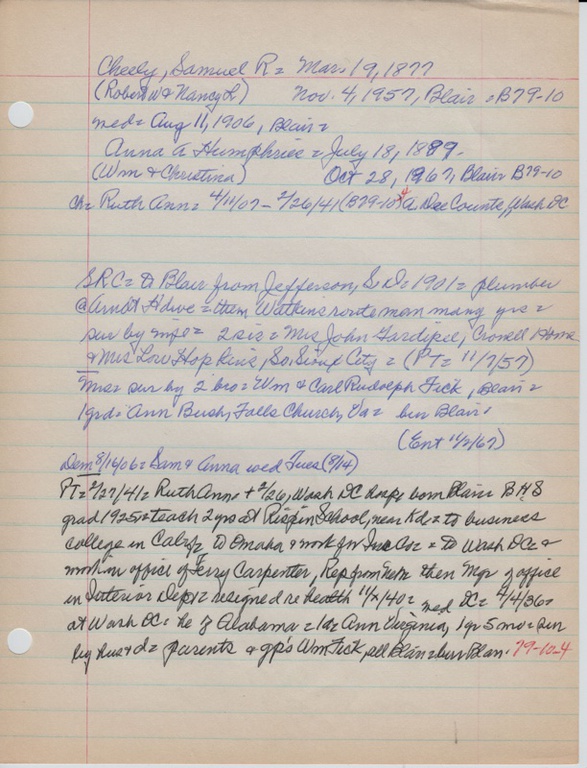 Cheely, Samuel R = Mar. 19, 1877
(Robert W & Nancy L) Nov. 4, 1957, Blair = B79-10
med = Aug 11, 1906, Blair =
Anna A Humphries = July 18, 1889.
(Wm & Christina) Oct 28, 1967, Blair B79-10
ch = Ruth Ann = 4/11/07 - 2/26/41 (B79-10 4 Dee Counts, Wash DC
SRC = to Blair from Jefferson, S.D = 1901 = plumber
@ Arndt Hdwe = then Watkins route man many yrs =
sur by 2 sis = Mrs John Crowell Home
& Mrs Lou Hopkins, So. Sioux City = (PT = 11/7/57)
Mrs = sur by 2 bro = Wm & Carl Rudolph Fick, Blair =
1 grd = Ann Bush, Falls Church, Va = bur Blair.
(Ent 11/2/67)
Dem 8/16/06 = Sam & Anna wed Tues (8/14)
PT = 2/27/41 = Ruth Anne + 2/26, Wash DC born Blair = BHS
grad 1925 = teach 2 yrs at School, near Kd = to business
college in to Omaha & work for Ins Co = to Wash DC &
work in office of Terry Carpenter, Rep from Neb then Mgr of office
in Interior Dept = resigned re health 11/x/40 = med DC = 4/4/36 =
at Wash DC = he of Alabama = 1d = Ann Virginia, 1 yr 5 mo = sur
by hus & d = parents & gp's Wm Fick, all Blair = bur Blair. 79-10-4